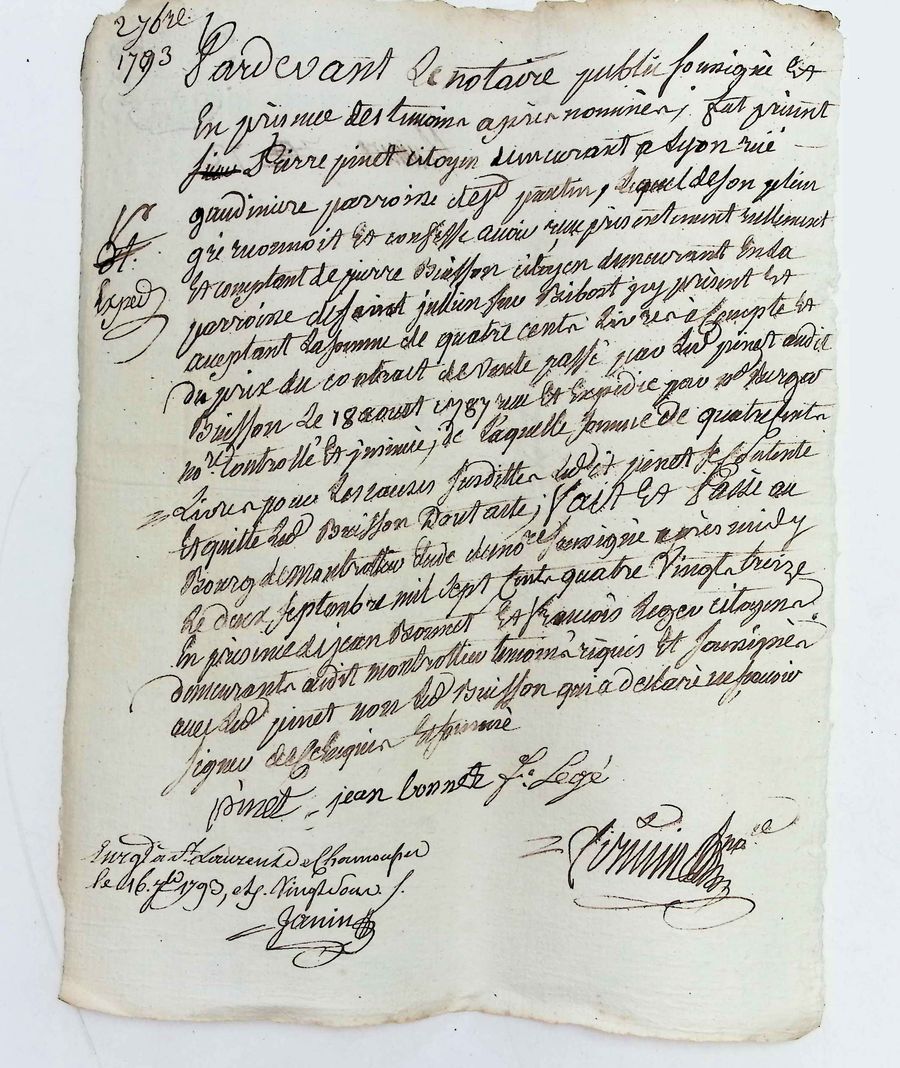 2 7bre
1793
Pardevant Le notaire public soussigné Et
En présence des temoins après nommés, fut présent
sieur Pierre pinet citoyen demeurant a Lyon rüe
paroisse de , Lequel de son plein
gré reconnoit Et confesse avoir reçu présentement réellement
Et comptant de pierre Buisson citoyen demeurant En la
parroisse de saint jullien sur Bibost icy présent Et
aceptant La somme de quatre cents Livres à Compte Et
du prix du contrat de vente passé par Led pinet audit
Buisson Le 18 aout 1787 reçu Et Expédié par
nore. Controllé Et , de Laquelle somme de quatre cents
Livres pour Les causes susdittes Ledit pinet se Contente
Et quitte Led Buisson D'autant; Fait Et Passé au
Bourg de Montrottier Etude de nore soussigné après midy
Le deux septembre mil sept Cents quatre Vingts treize
En présence de jean Bonnet Et François Leger citoyens
demeurants audit montrottier temoins réquis Et soussignés
avec Led pinet non Led Buisson qui a déclaré ne savoir
signer de Ce Enquis Et sommé
Exped
pinet jean bonnet fs. Legé
Enrgé à St. Laurent de Chamousset
le 16. 7bre 1793,
Janin